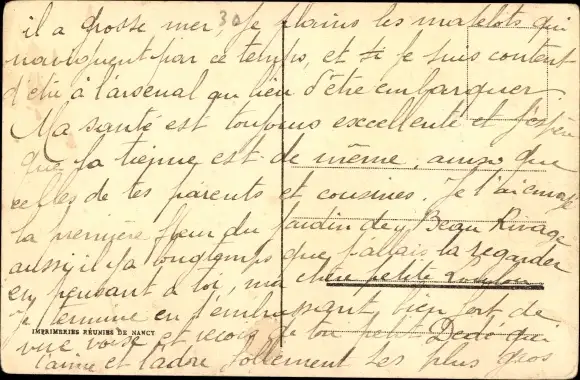 il a grosse mer, Je plains les matelots qui
30
naviguent par ce temps, et si je suis content
d'être à l'arsenal au lieu d'être embarquer
Ma santé est toujours excellente et j'espère
que la tienne est de même, ainsi que
celles de tes parents et cousines. Je t'ai envoyé
la première fleur du Jardin de Beau Rivage
aussi, il y a longtemps que j'allais la regarder
en pensant à toi, ma chère petite
Je termine en t'embrassant bien fort de
vive voix et reçois de ton petit Dédé qui
t'aime et t'adore follement ses plus gros
IMPRIMERIES RÉUNIES DE NANCY